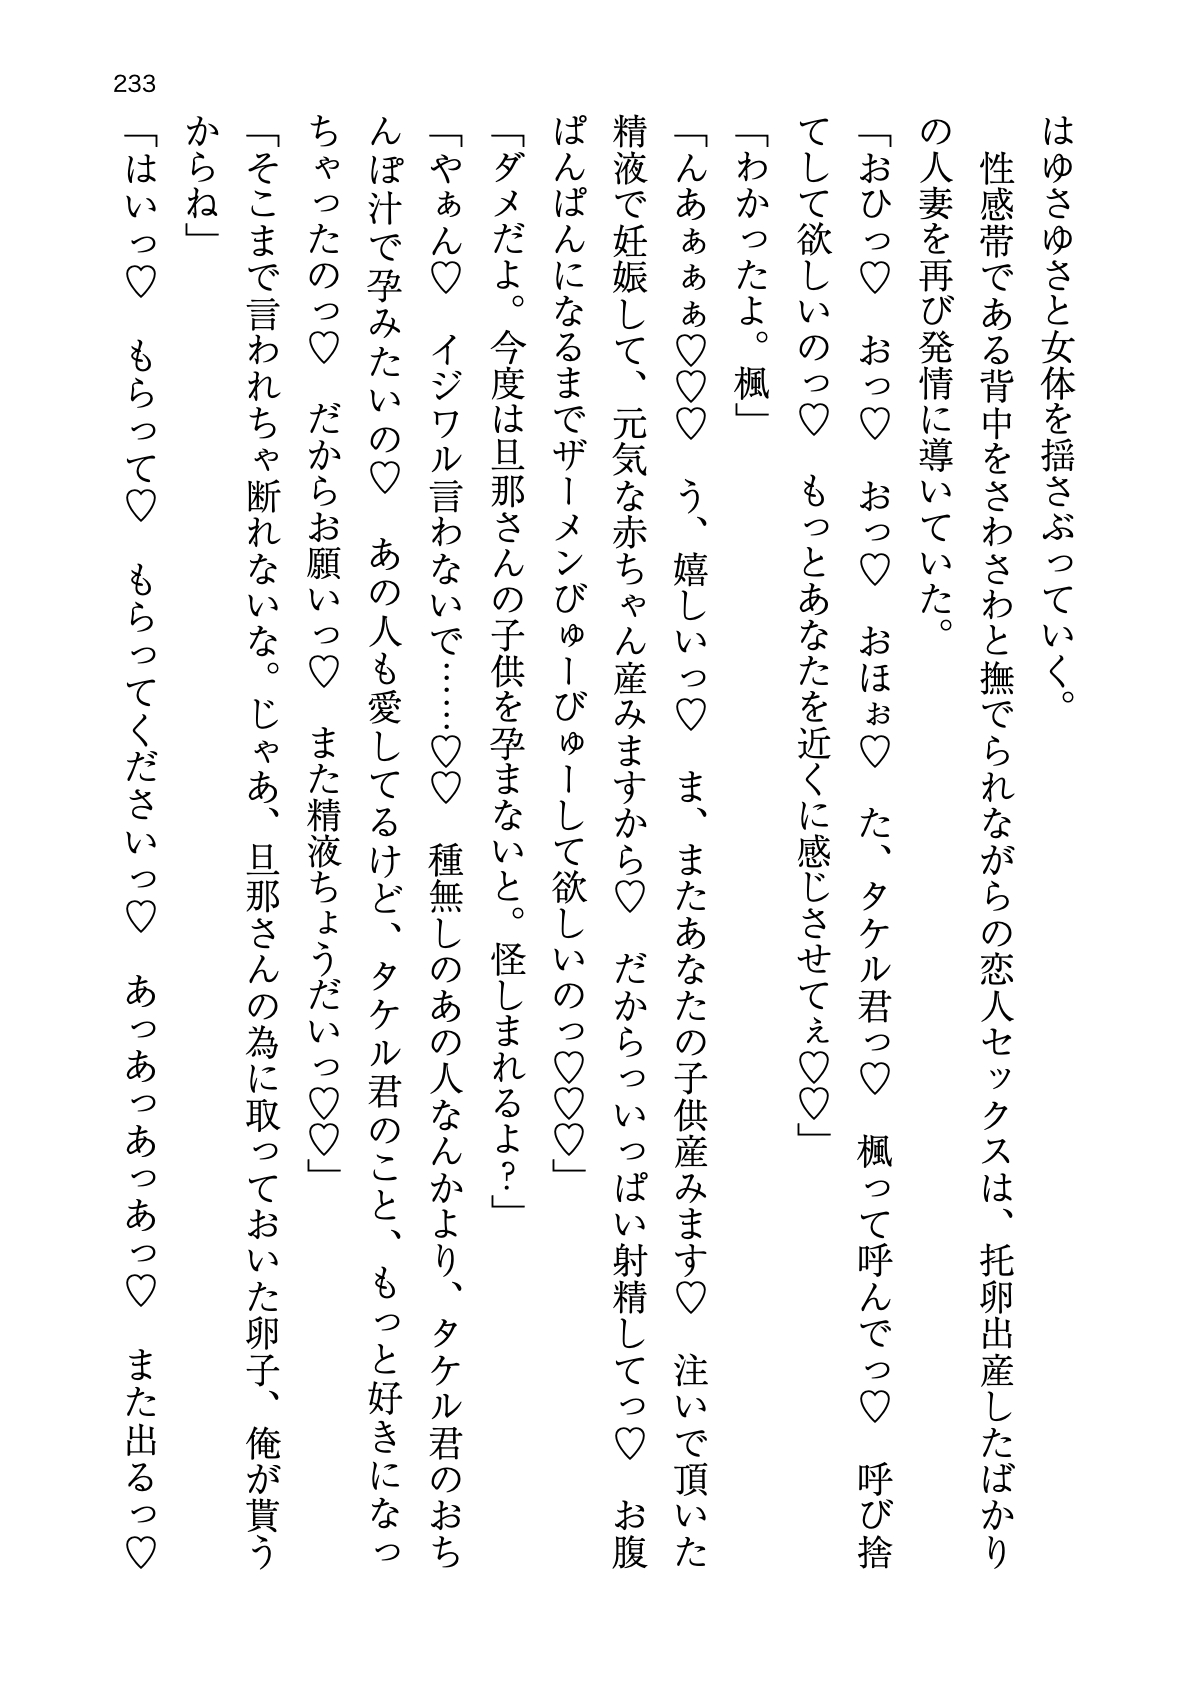 233
はゆさゆさと女体を揺さぶっていく。
　性感帯である背中をさわさわと撫でられながらの恋人セックスは、托卵出産したばかり
の人妻を再び発情に導いていた。
「おひっ♡　おっ♡　おっ♡　おほぉ♡　た、タケル君っ♡　楓って呼んでっ♡　呼び捨
てして欲しいのっ♡　もっとあなたを近くに感じさせてぇ♡♡」
「わかったよ。楓」
「んあぁぁぁ♡♡♡　う、嬉しいっ♡　ま、またあなたの子供産みます♡　注いで頂いた
精液で妊娠して、元気な赤ちゃん産みますから♡　だからっいっぱい射精してっ♡　お腹
ぱんぱんになるまでザーメンびゅーびゅーして欲しいのっ♡♡♡」
「ダメだよ。今度は旦那さんの子供を孕まないと。怪しまれるよ？」
「やぁん♡　イジワル言わないで……♡♡　種無しのあの人なんかより、タケル君のおち
んぽ汁で孕みたいの♡　あの人も愛してるけど、タケル君のこと、もっと好きになっ
ちゃったのっ♡　だからお願いっ♡　また精液ちょうだいっ♡♡」
「そこまで言われちゃ断れないな。じゃあ、旦那さんの為に取っておいた卵子、俺が貰う
からね」
「はいっ♡　もらって♡　もらってくださいっ♡　あっあっあっあっ♡　また出るっ♡